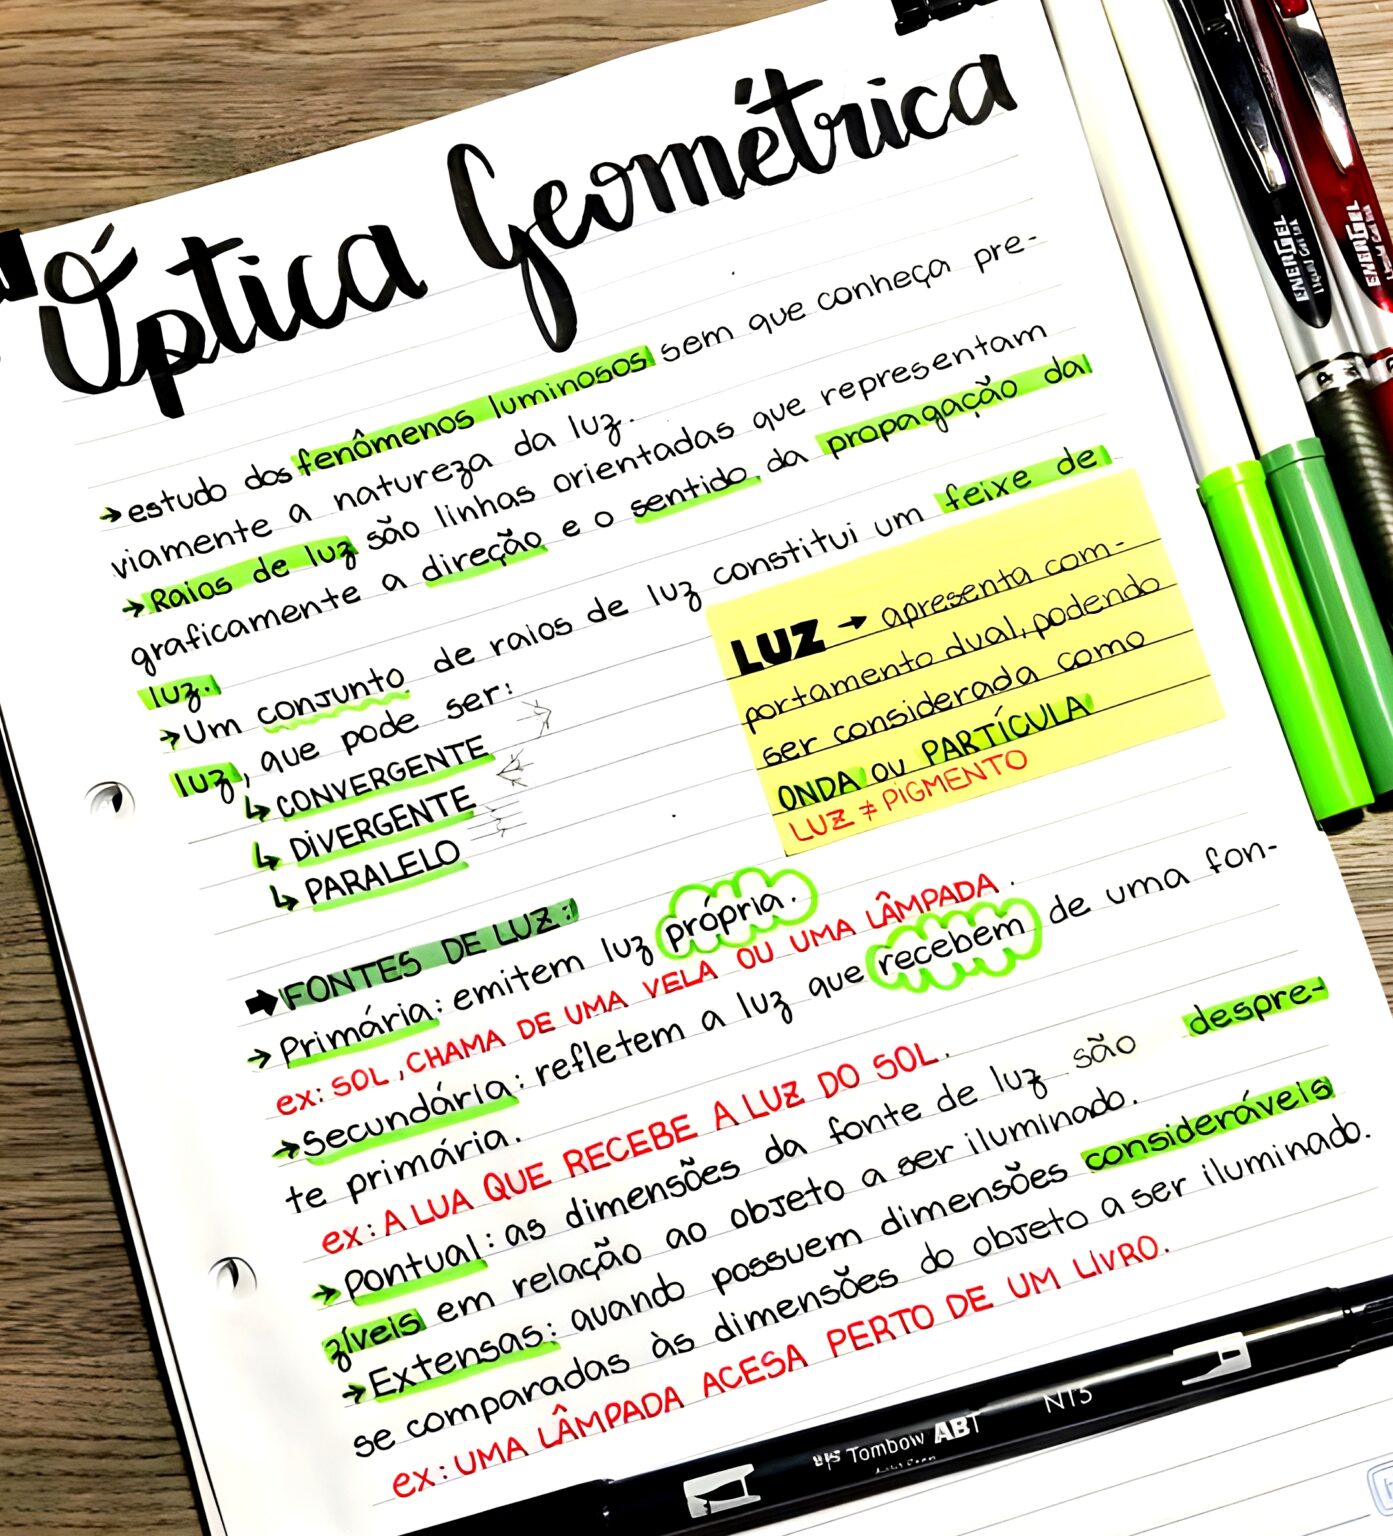 Óptica Geométrica
→ estudo dos fenômenos luminosos sem que conheça pre-
viamente a natureza da luz.
→ Raios de luz são linhas orientadas que representam
graficamente a direção e o sentido da propagação da
luz.
→ Um conjunto de raios de luz constitui um feixe de
luz, que pode ser:
↳ CONVERGENTE
↳ DIVERGENTE
↳ PARALELO
LUZ → apresenta com-
portamento dual, podendo
ser considerada como
ONDA ou PARTÍCULA
LUZ ≠ PIGMENTO
➡ FONTES DE LUZ:
→ Primária: emitem luz própria.
ex: SOL, CHAMA DE UMA VELA OU UMA LÂMPADA.
→ Secundária: refletem a luz que recebem de uma fon-
te primária.
ex: A LUA QUE RECEBE A LUZ DO SOL.
→ Pontual: as dimensões da fonte de luz são despre-
zíveis em relação ao objeto a ser iluminado.
→ Extensas: quando possuem dimensões consideráveis
se comparadas às dimensões do objeto a ser iluminado.
ex: UMA LÂMPADA ACESA PERTO DE UM LIVRO.
ENERGEL
ENERGEL
Tombow ABT N15